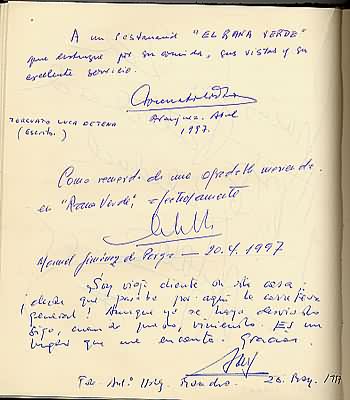 A un restaurante "EL RANA VERDE"
que distingue por su comida, sus vistas y su
excelente servicio.
TORCUATO LUCA DE TENA
(Escritor.)
Aranjuez. Abril
1997.
Como recuerdo de una agradable merienda
en "Rana Verde", afectuosamente
Manuel Jiménez de Parga — 20.4.1997
Soy viejo cliente de esta casa
¡desde que pasaba por aquí la carretera
general! Aunque ya se haya desviado
sigo, cuando puedo, viniendo. Es un
lugar que me encanta. Gracias.
Fdo. Ant.º